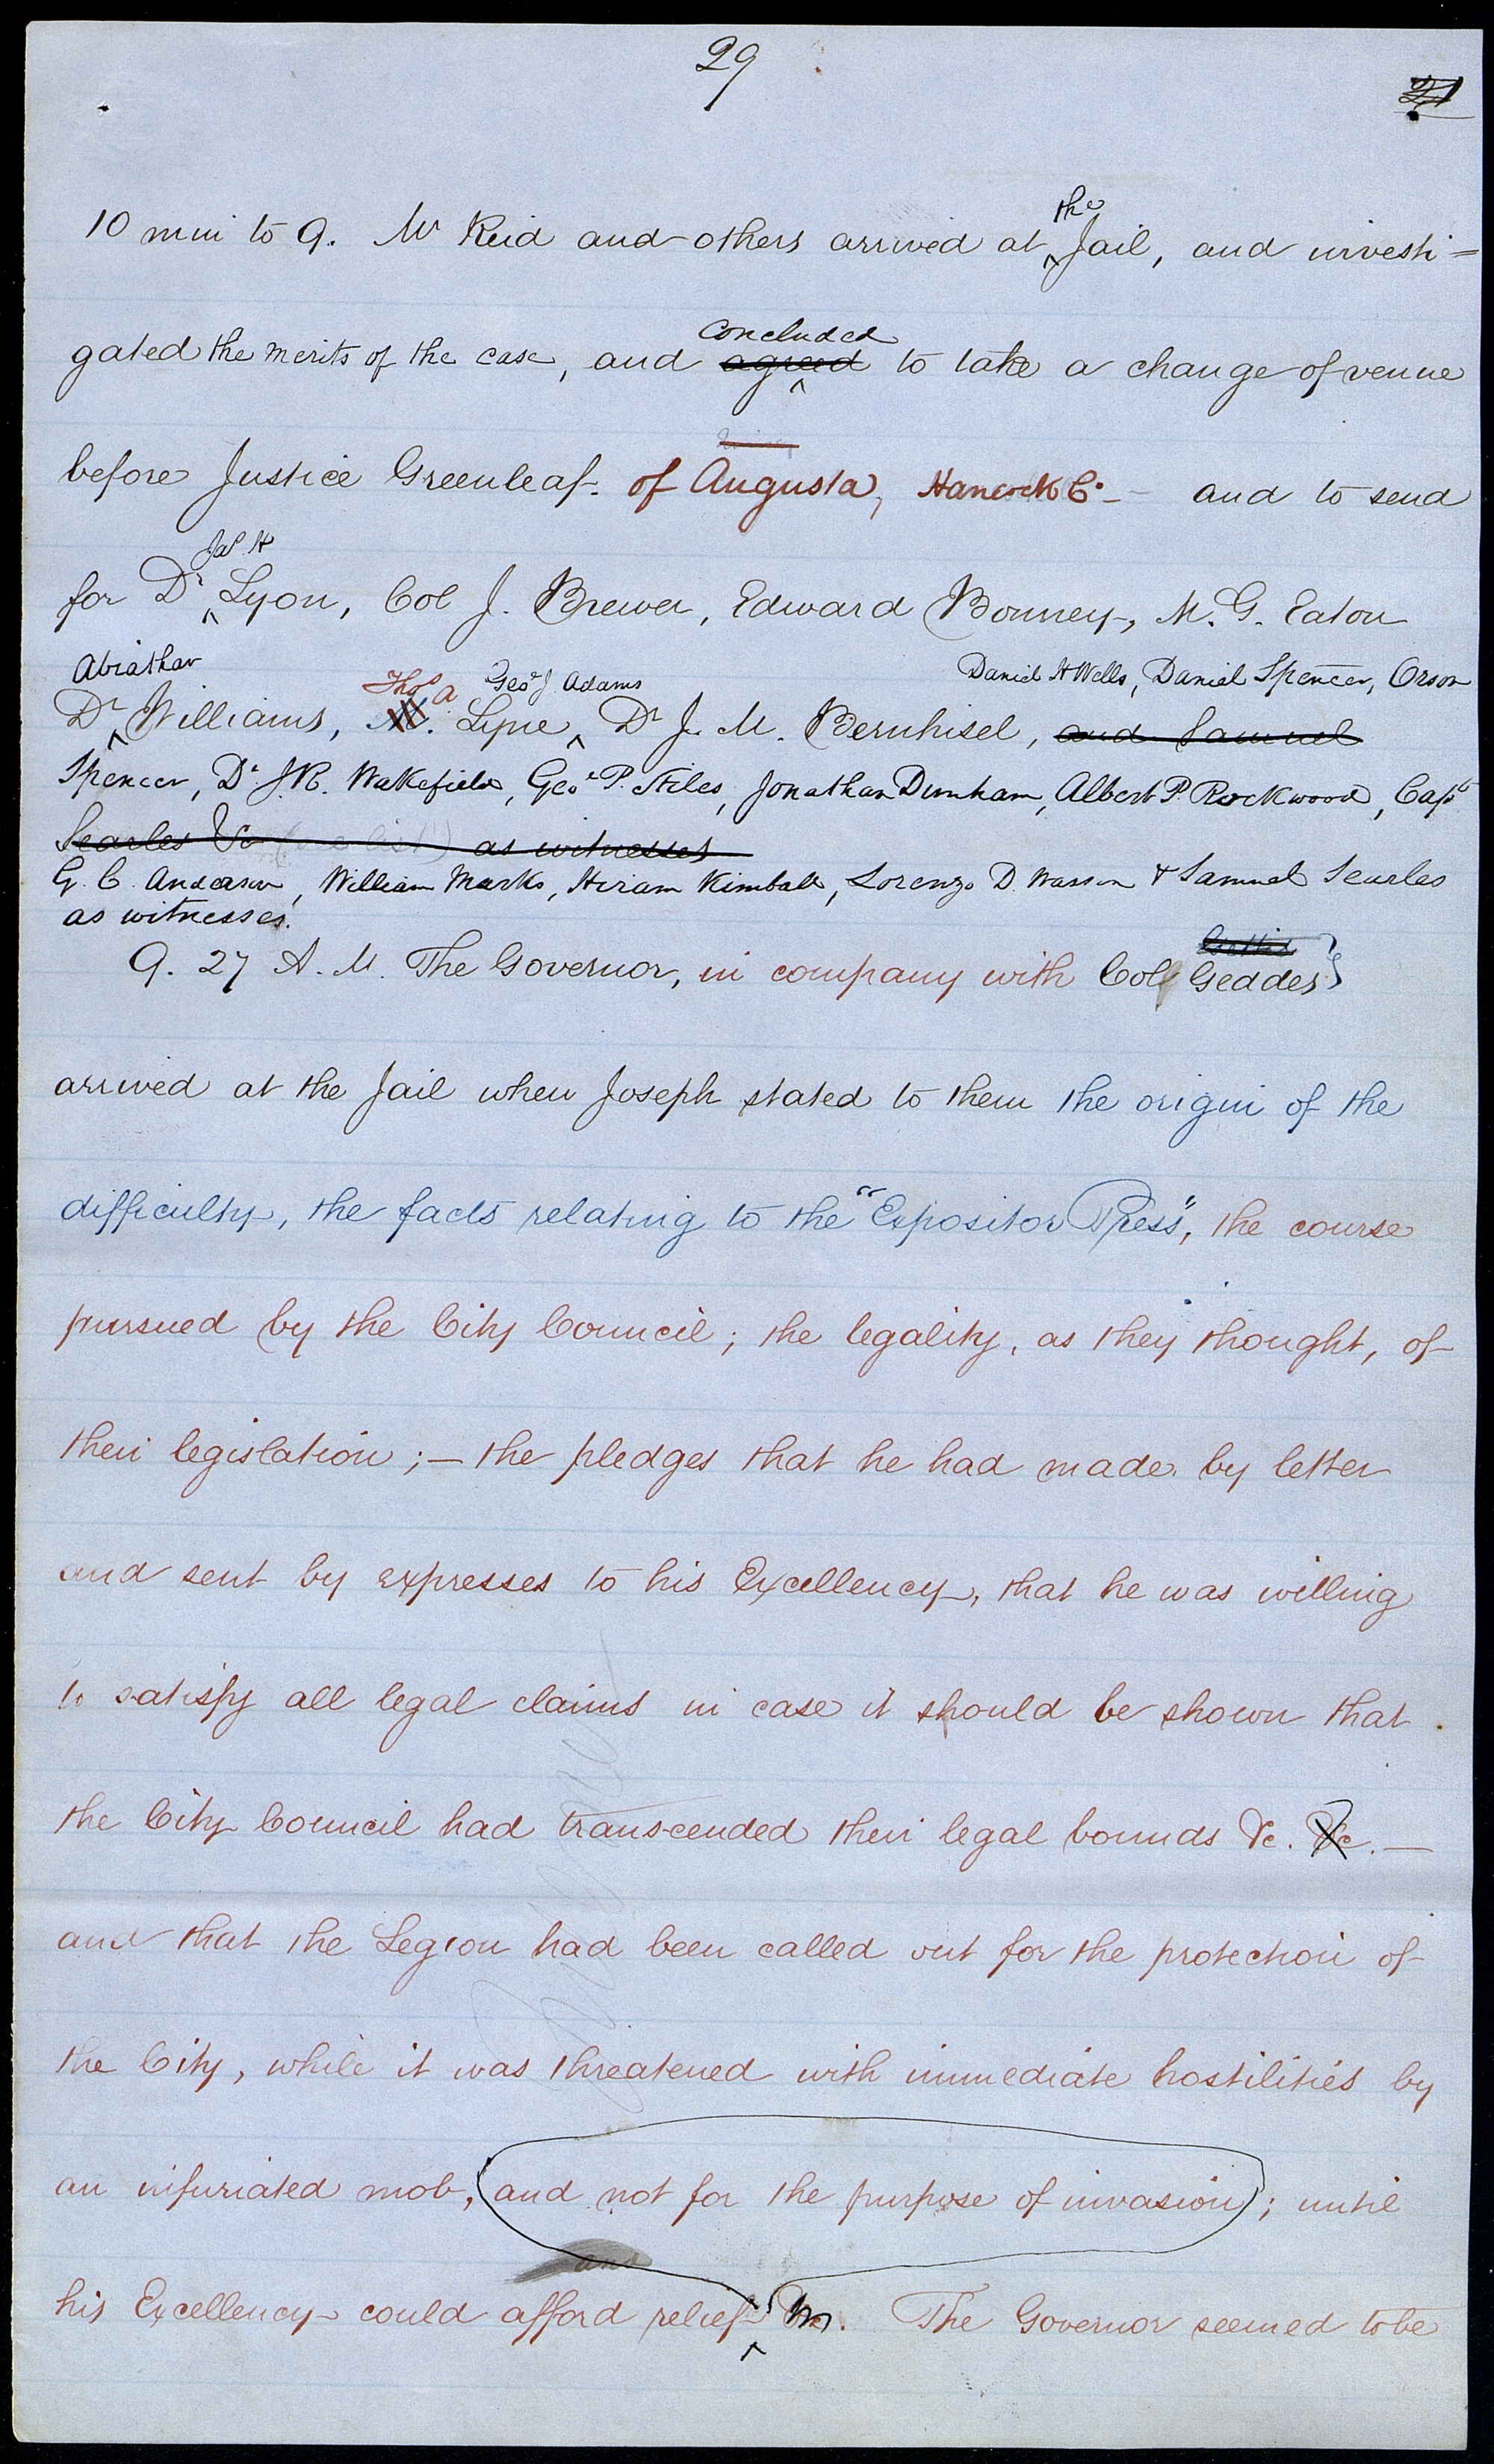 29
21
the
10 min to 9. Mr Reid and others arrived at ^ Jail, and investi=
concluded
gated the merits of the case, and agreed ^ to take a change of venue
before Justice Greenleaf. of Augusta, Hancock Co. — and to send
Jas. H
for Dr ^ Lyon, Col J. Brewer, Edward Bonney, M. G. Eaton
Abiathar Thos a Geo. J Adams Daniel H Wells, Daniel Spencer, Orson
Dr ^ Williams, M. Lyne ^ Dr J. M. Bernhisel, and Samuel
Spencer, Dr. J.R. Wakefield, Geo. P. Stiles, Jonathan Dunham, Albert P. Rockwood, Capt
Searles &c as witnesses
G. C. Anderson, William Marks, Hiram Kimball, Lorenzo D. Wasson & Samuel Searles
as witnesses.
9. 27 A. M. The Governor, in company with Col Geddes}
arrived at the Jail when Joseph stated to them the origin of the
difficulty, the facts relating to the "Expositor Press", the course
pursued by the City Council; the legality, as they thought, of
their legislation; — the pledges that he had made by letter
and sent by expresses to his Excellency, that he was willing
to satisfy all legal claims in case it should be shown that
the City Council had transcended their legal bounds &c. &c. —
and that the Legion had been called out for the protection of
the City, while it was threatened with immediate hostilities by
an infuriated mob, (and not for the purpose of invasion); until
and
his Excellency could afford relief ^. The Governor seemed to be